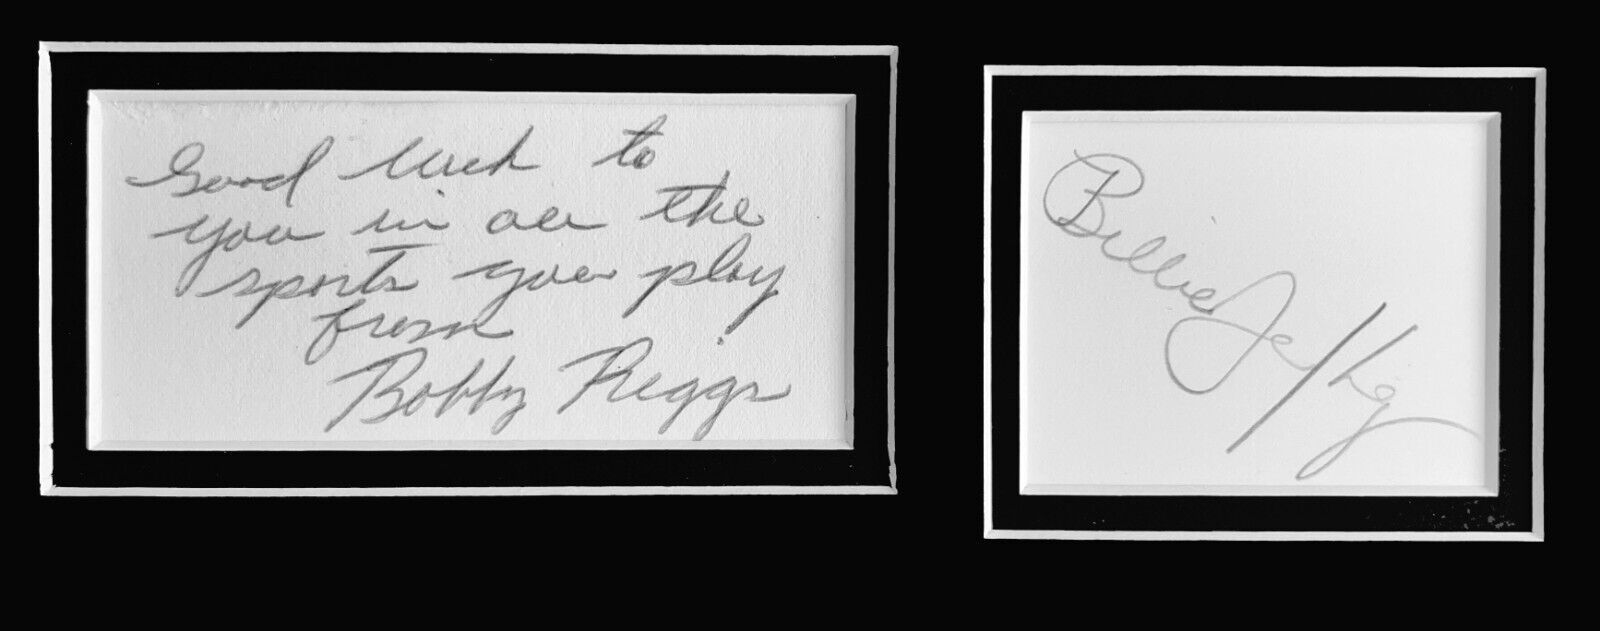 Good luck to
you in all the
sports you play
from
Bobby Riggs
Billie Jean King